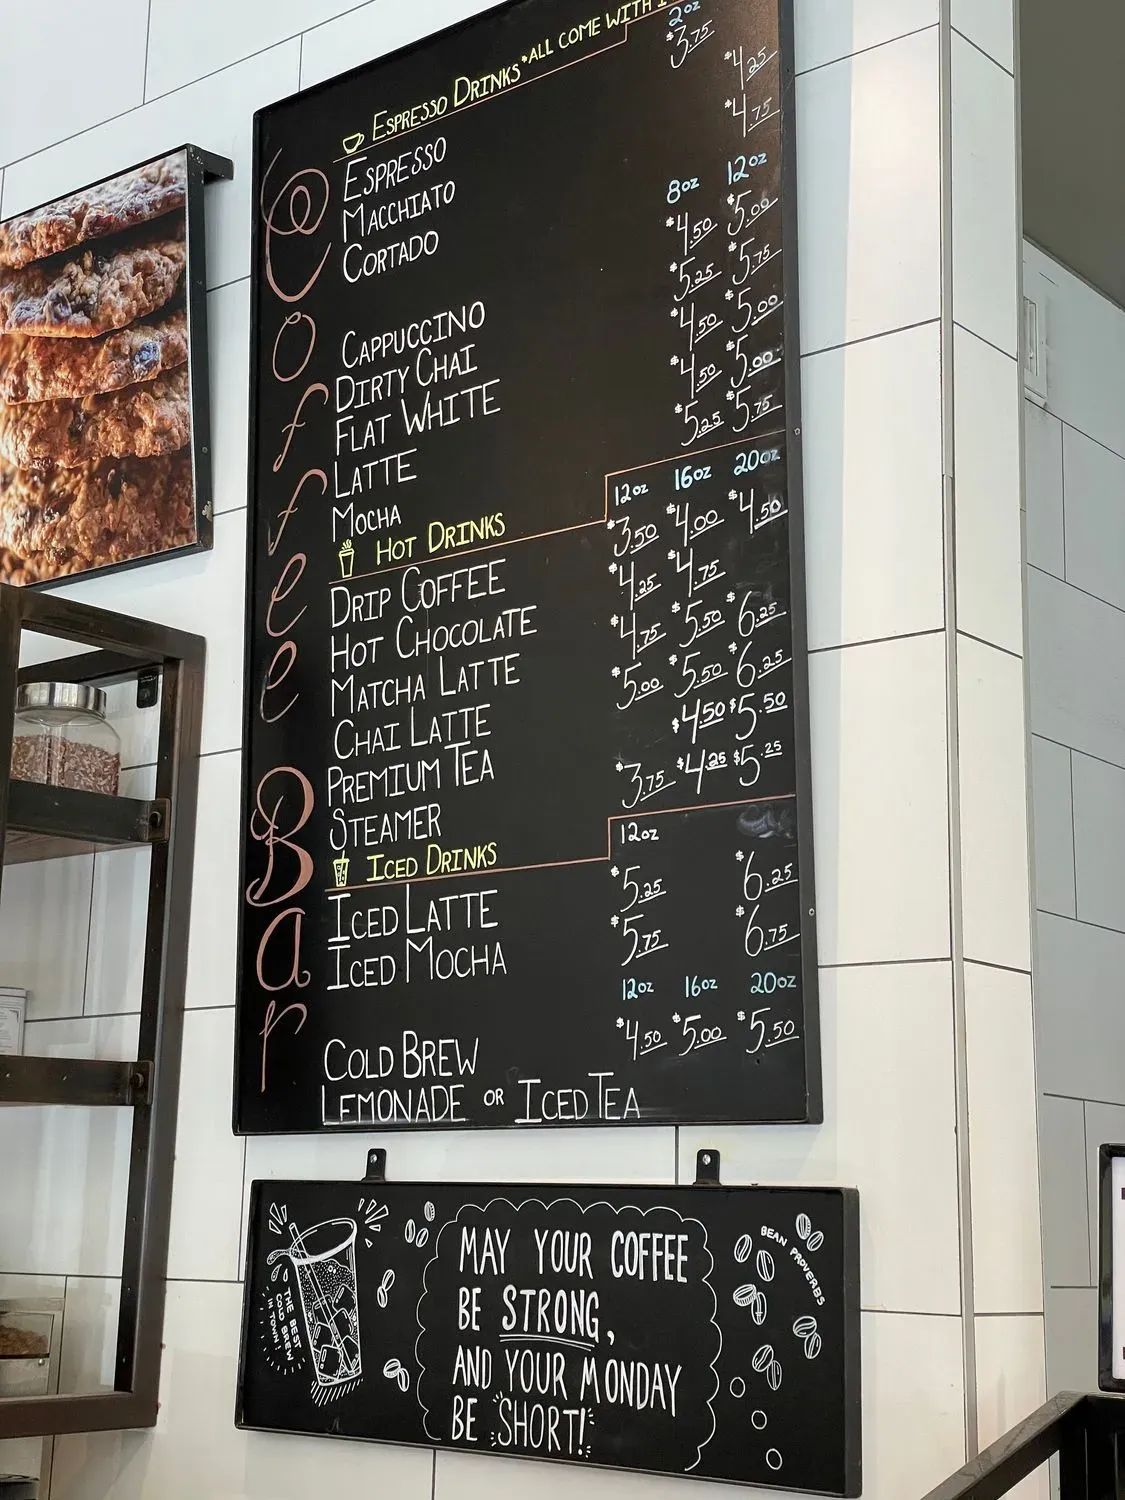 Coffee Bar
ESPRESSO DRINKS *ALL COME WITH
2oz
ESPRESSO $3.75
MACCHIATO $4.25
CORTADO $4.75
8oz 12oz
CAPPUCCINO $4.50 $5.00
DIRTY CHAI $5.25 $5.75
FLAT WHITE $4.50 $5.00
LATTE $4.50 $5.00
MOCHA $5.25 $5.75
HOT DRINKS 12oz 16oz 20oz
DRIP COFFEE $3.50 $4.00 $4.50
HOT CHOCOLATE $4.25 $4.75
MATCHA LATTE $4.75 $5.50 $6.25
CHAI LATTE $5.00 $5.50 $6.25
PREMIUM TEA $4.50 $5.50
STEAMER $3.75 $4.25 $5.25
ICED DRINKS 12oz
ICED LATTE $5.25 $6.25
ICED MOCHA $5.75 $6.75
12oz 16oz 20oz
COLD BREW $4.50 $5.00 $5.50
LEMONADE OR ICED TEA
THE BEST
COLD BREW
IN TOWN!
MAY YOUR COFFEE
BE STRONG,
AND YOUR MONDAY
BE SHORT!
BEAN PROVERBS